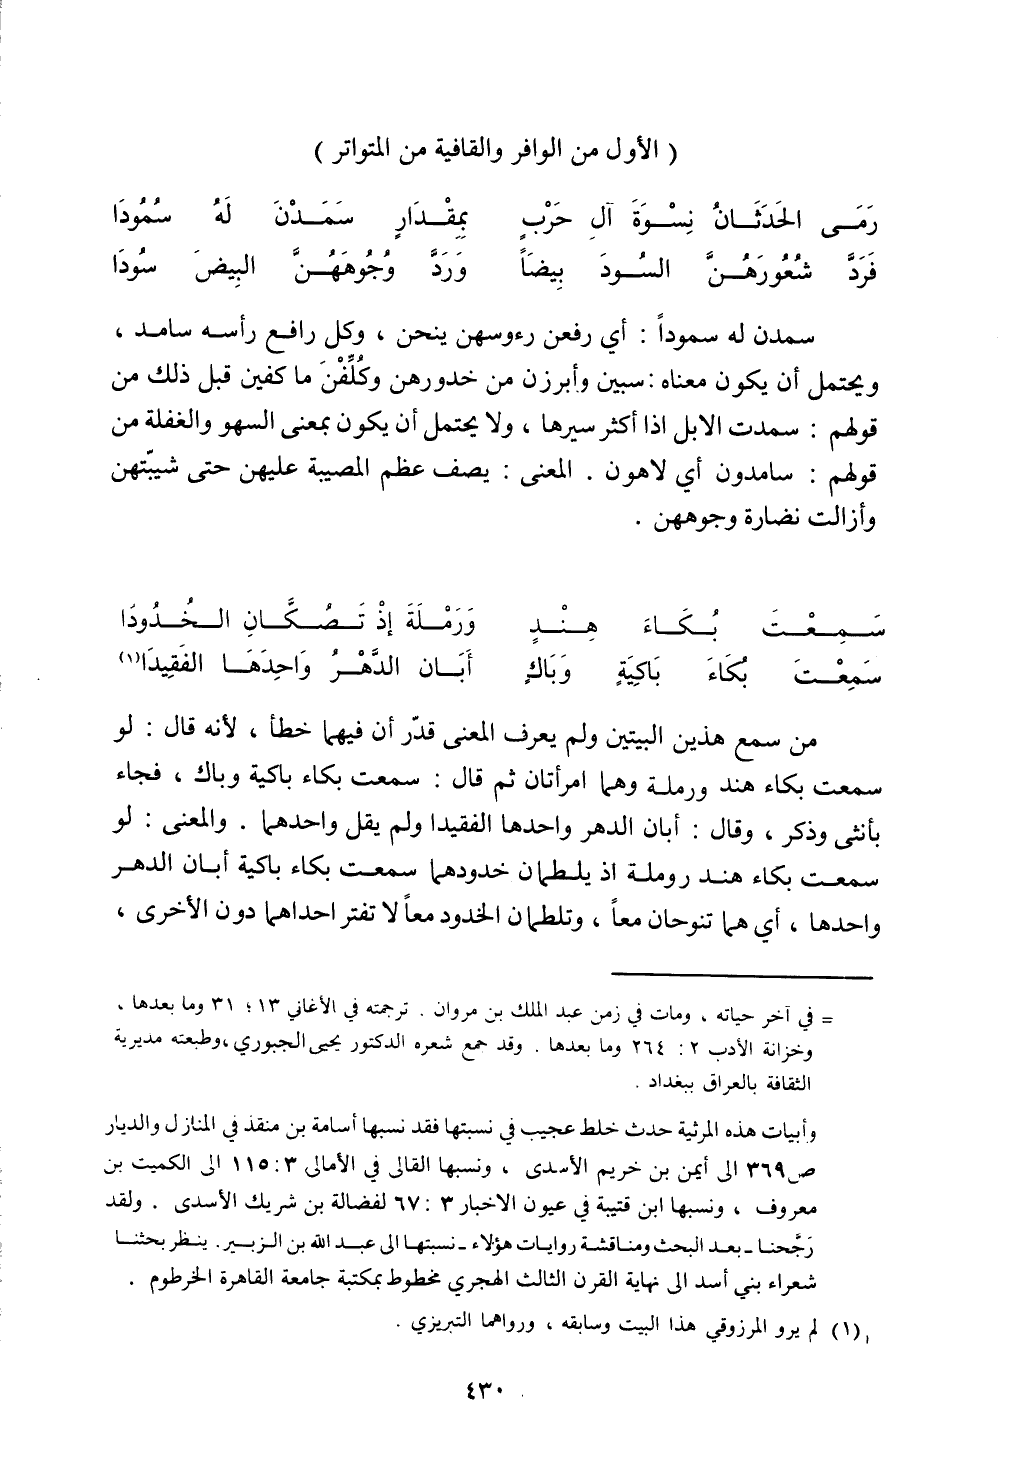 ( الأول من الوافر والقافية من المتواتر )
رَمَـى الحَدَثَـانُ نِسْـوَةَ آلِ حَرْبٍ بِمِقْـدَارٍ سَمَـدْنَ لَهُ سُمُودَا
فَرَدَّ شُعُورَهُـنَّ السُّودَ بِيضَاً وَرَدَّ وُجُوهَهُـنَّ البِيضَ سُودَا
سمدن له سموداً : أي رفعن رءوسهن ينحن ، وكل رافع رأسه سامد ،
ويحتمل أن يكون معناه : سبين وأبرزن من خدورهن وكُلِّفْنَ ما كفين قبل ذلك من
قولهم : سمدت الابل اذا أكثر سيرها ، ولا يحتمل أن يكون بمعنى السهو والغفلة من
قولهم : سامدون أي لاهون . المعنى : يصف عظم المصيبة عليهن حتى شيّبتهن
وأزالت نضارة وجوههن .
سَمِعْتَ بُكَاءَ هِنْدٍ وَرَمْلَةَ إِذْ تَصُكَّانِ الخُدُودَا
سَمِعْتَ بُكَاءَ بَاكِيَةٍ وَبَاكٍ أَبَـان الدَّهْـرُ وَاحِدَهَـا الفَقِيدَا(١)
من سمع هذين البيتين ولم يعرف المعنى قدّر أن فيهما خطأ ، لأنه قال : لو
سمعت بكاء هند ورملة وهما امرأتان ثم قال : سمعت بكاء باكية وباك ، فجاء
بأنثى وذكر ، وقال : أبان الدهر واحدها الفقيدا ولم يقل واحدهما . والمعنى : لو
سمعت بكاء هند روملة اذ يلطمان خدودهما سمعت بكاء باكية أبان الدهر
واحدها ، أي هما تنوحان معاً ، وتلطمان الخدود معاً لا تفتر احداهما دون الأخرى ،
= في آخر حياته ، ومات في زمن عبد الملك بن مروان . ترجمته في الأغاني ١٣ ؛ ٣١ وما بعدها ،
وخزانة الأدب ٢ : ٢٦٤ وما بعدها . وقد جمع شعره الدكتور يحيى الجبوري ،وطبعته مديرية
الثقافة بالعراق ببغداد .
وأبيات هذه المرثية حدث خلط عجيب في نسبتها فقد نسبها أسامة بن منقذ في المنازل والديار
ص٣٦٩ الى أيمن بن خريم الأسدى ، ونسبها القالى في الأمالى ٣ : ١١٥ الى الكميت بن
معروف ، ونسبها ابن قتيبة في عيون الاخبار ٣ : ٦٧ لفضالة بن شريك الأسدى . ولقد
رَجَّحنا ـ بعد البحث ومناقشة روايات هؤلاء ـ نسبتها الى عبد الله بن الزبير . ينظر بحثنا
شعراء بني أسد الى نهاية القرن الثالث الهجري مخطوط بمكتبة جامعة القاهرة الخرطوم .
(١) لم يرو المرزوقي هذا البيت وسابقه ، ورواهما التبريزي .
٤٣٠